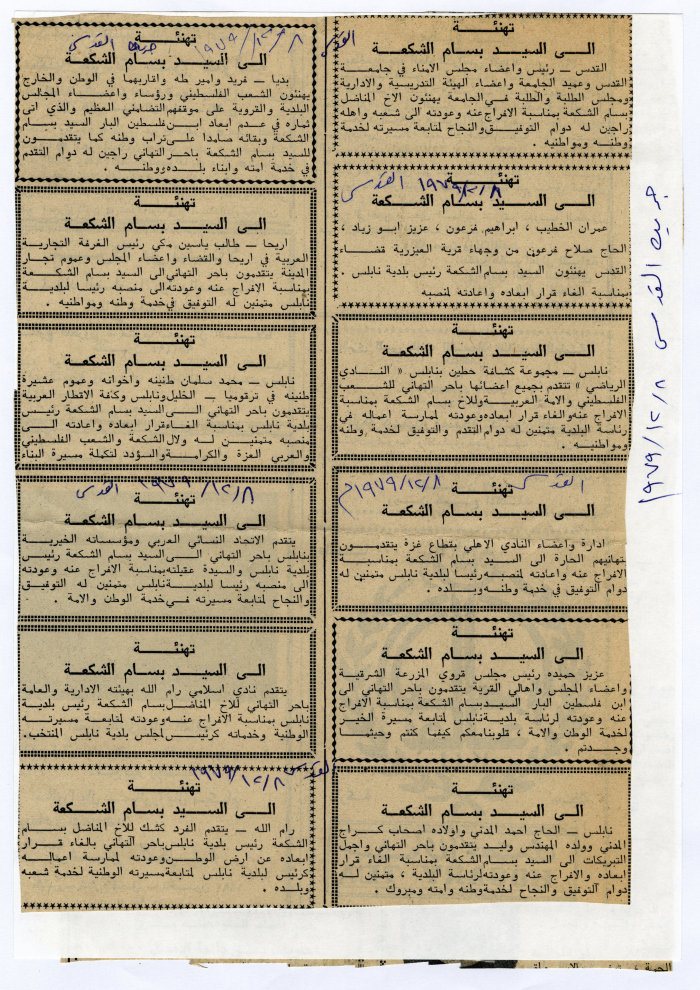 القدس
تهنئة
الى السيد بسام الشكعة
القدس – رئيس واعضاء مجلس الامناء في جامعة
القدس وعميد الجامعة واعضاء الهيئة التدريسية والادارية
ومجلس الطلبة والطلبة في الجامعة يهنئون الاخ المناضل
بسام الشكعة بمناسبة الافراج عنه وعودته الى شعبه واهله
راجين له دوام التوفيق والنجاح لمتابعة مسيرته لخدمة
وطنه ومواطنيه .
القدس ١٩٧٩/١٢/٨
تهنئة
الى السيد بسام الشكعة
عمران الخطيب ، ابراهيم فرعون ، عزيز ابو زياد ،
الحاج صلاح فرعون من وجهاء قرية العيزرية قضاء
القدس يهنئون السيد بسام الشكعة رئيس بلدية نابلس .
بمناسبة الغاء قرار ابعاده واعادته لمنصبه
تهنئة
الى السيد بسام الشكعة
نابلس – مجموعة كشافة حطين بنابلس « النادي
الرياضي » تتقدم بجميع اعضائها باحر التهاني للشعب
الفلسطيني والامة العربية وللاخ بسام الشكعة بمناسبة
الافراج عنه والغاء قرار ابعاده وعودته لممارسة اعماله في
رئاسة البلدية متمنين له دوام التقدم والتوفيق لخدمة وطنه
ومواطنيه .
القدس ١٩٧٩/١٢/٨م
تهنئة
الى السيد بسام الشكعة
ادارة واعضاء النادي الاهلي بقطاع غزة يتقدمون
بتهانيهم الحارة الى السيد بسام الشكعة بمناسبة
الافراج عنه واعادته لمنصبه رئيسا لبلدية نابلس متمنين له
دوام التوفيق في خدمة وطنه وبلده .
تهنئة
الى السيد بسام الشكعة
عزيز حميده رئيس مجلس قروي المزرعة الشرقية
واعضاء المجلس واهالي القرية يتقدمون باحر التهاني الى
ابن فلسطين البار السيد بسام الشكعة بمناسبة الافراج
عنه وعودته لرئاسة بلدية نابلس لمتابعة مسيرة الخير
لخدمة الوطن والامة ، قلوبنا معكم كيفما كنتم وحيثما
وجدتم .
تهنئة
الى السيد بسام الشكعة
نابلس – الحاج احمد المدني واولاده اصحاب كراج
المدني وولده المهندس وليد يتقدمون باحر التهاني واجمل
التبريكات الى السيد بسام الشكعة بمناسبة الغاء قرار
ابعاده والافراج عنه وعودته لرئاسة البلدية ، متمنين له
دوام التوفيق والنجاح لخدمة وطنه وامته ومبروك .
جريدة القدس ١٩٧٩/١٢/٨
تهنئة
الى السيد بسام الشكعة
بديا – فريد وامير طه واقاربهما في الوطن والخارج
يهنئون الشعب الفلسطيني ورؤساء واعضاء المجالس
البلدية والقروية على موقفهم التضامني العظيم والذي اتى
ثماره في عدم ابعاد ابن فلسطين البار السيد بسام
الشكعة وبقائه صامدا على تراب وطنه كما يتقدمون
للسيد بسام الشكعة باحر التهاني راجين له دوام التقدم
في خدمة امته وابناء بلده ووطنه .
تهنئة
الى السيد بسام الشكعة
اريحا – طالب ياسين مكي رئيس الغرفة التجارية
العربية في اريحا والقضاء واعضاء المجلس وعموم تجار
المدينة يتقدمون باحر التهاني الى السيد بسام الشكعة
بمناسبة الافراج عنه وعودته الى منصبه رئيسا لبلدية
نابلس متمنين له التوفيق في خدمة وطنه ومواطنيه .
تهنئة
الى السيد بسام الشكعة
نابلس – محمد سلمان طنينه واخوانه وعموم عشيرة
طنينه في ترقوميا – الخليل ونابلس وكافة الاقطار العربية
يتقدمون باحر التهاني الى السيد بسام الشكعة رئيس
بلدية نابلس بمناسبة الغاء قرار ابعاده واعادته الى
منصبه متمنين له ولال الشكعة والشعب الفلسطيني
والعربي العزة والكرامة والسؤدد لتكملة مسيرة البناء
القدس ١٩٧٩/١٢/٨
تهنئة
الى السيد بسام الشكعة
يتقدم الاتحاد النسائي العربي ومؤسساته الخيرية
بنابلس باحر التهاني الى السيد بسام الشكعة رئيس
بلدية نابلس والسيدة عقيلته بمناسبة الافراج عنه وعودته
الى منصبه رئيسا لبلدية نابلس متمنين له التوفيق
والنجاح لمتابعة مسيرته في خدمة الوطن والامة .
تهنئة
الى السيد بسام الشكعة
يتقدم نادي اسلامي رام الله بهيئته الادارية والعامة
باحر التهاني للاخ المناضل بسام الشكعة رئيس بلدية
نابلس بمناسبة الافراج عنه وعودته لمتابعة مسيرته
الوطنية وخدماته كرئيس لمجلس بلدية نابلس المنتخب.
القدس ١٩٧٩/١٢/٨
تهنئة
الى السيد بسام الشكعة
رام الله – يتقدم الفرد كشك للاخ المناضل بسام
الشكعة رئيس بلدية نابلس باحر التهاني بالغاء قرار
ابعاده عن ارض الوطن وعودته لممارسة اعماله
كرئيس لبلدية نابلس لمتابعة مسيرته الوطنية لخدمة شعبه
وبلده .
جريدة القدس ١٩٧٩/١٢/٨